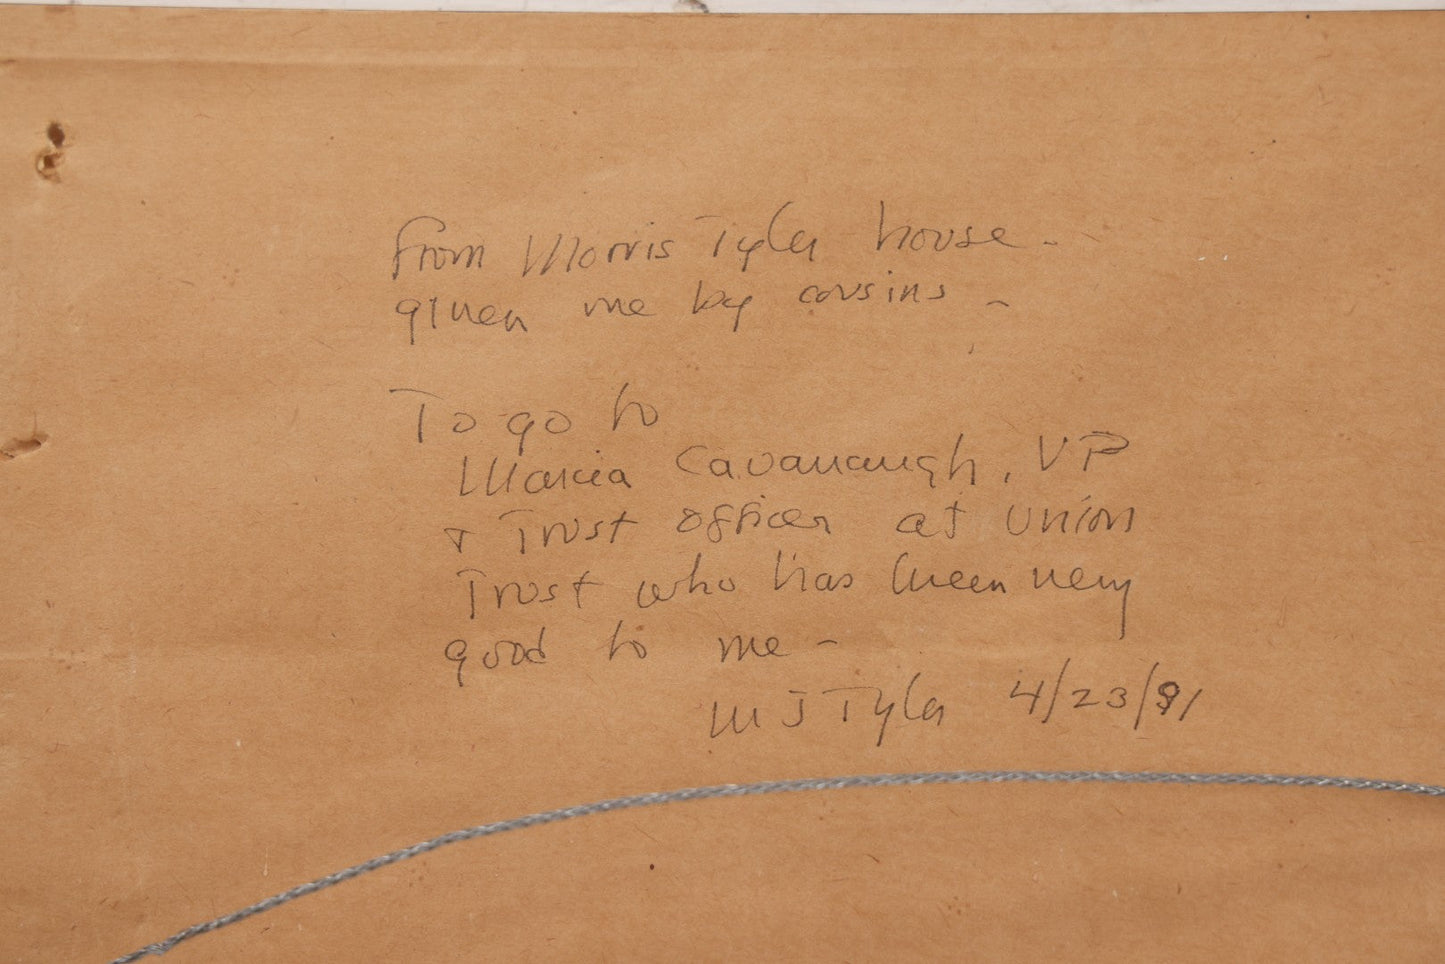 from Morris Tyler house -
given me by cousins -
To go to
Maria Cavanaugh, VP
+ Trust officer at Union
Trust who has been very
good to me -
M J Tyler 4/23/91